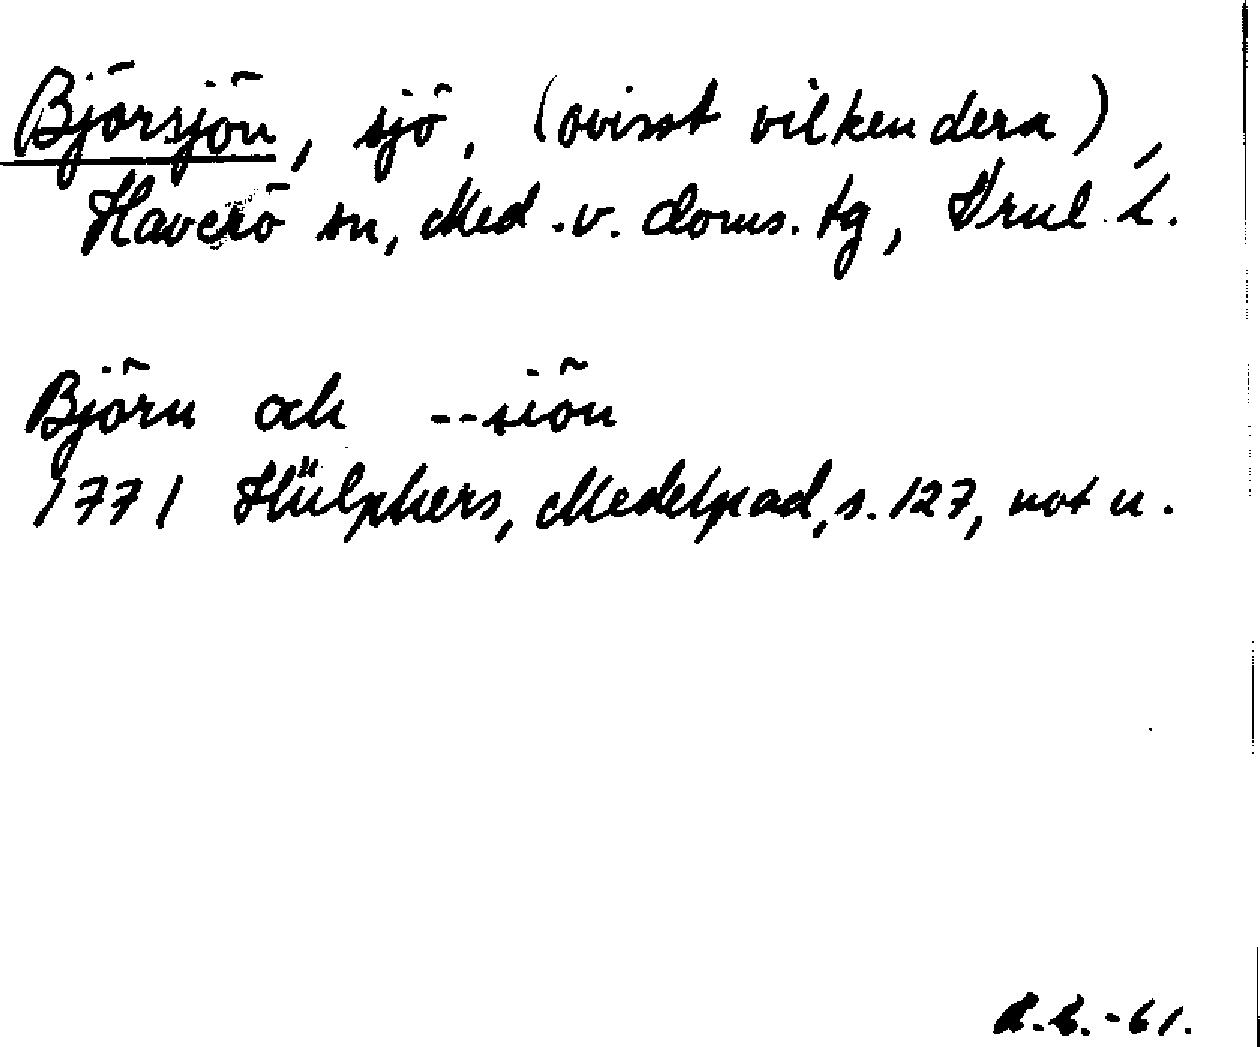 Björsjön, sjö, (ovisst vilkendera),
Haverö sn, Med. v. doms. tg, Vnl. L.
Björn och --siön
1771 Hülphers, Medelpad, s. 127, not u.
-61.